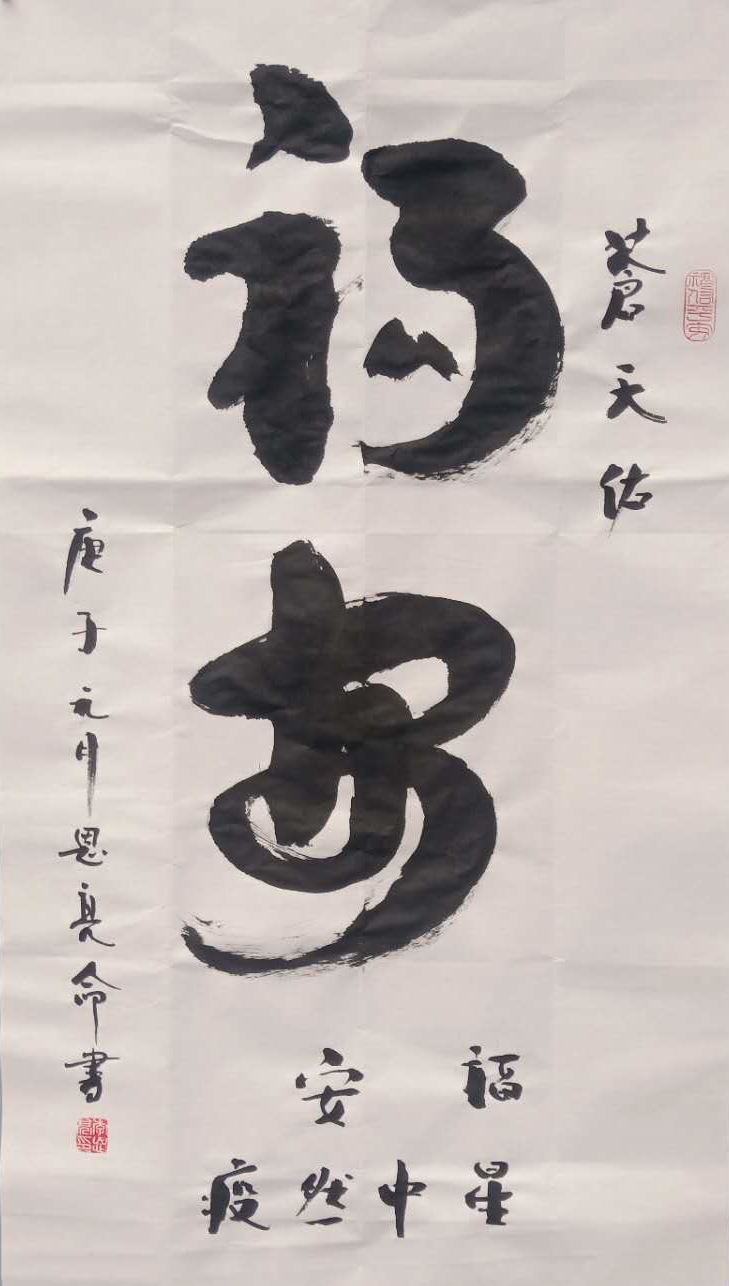 蒼天佑
福安
福星
中
安然
疫
庚子元月恩亮命書